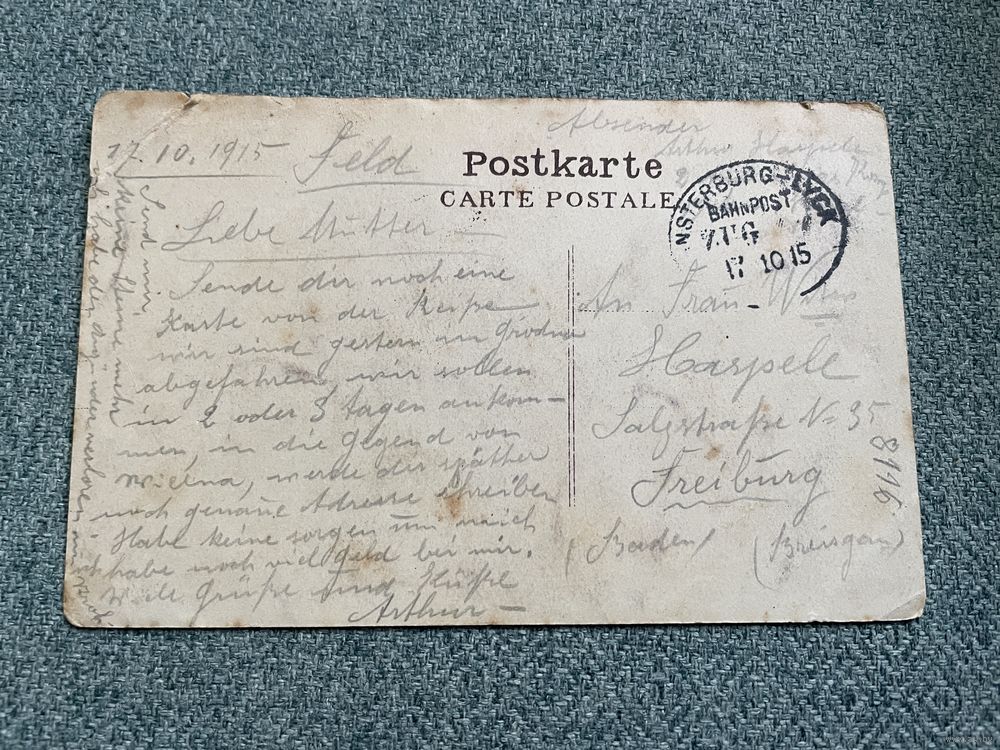 17. 10. 1915
Feld
Postkarte
CARTE POSTALE
Absender
Arthur Haspele
INSTERBURG-LYCK
BAHNPOST
ZUG
17 10 15
Liebe Mutter
Sende dir noch eine
Karte von der Reiße
wir sind gestern in Grodno
abgefahren, wir sollen
in 2 oder 3 tagen ankom-
men, in die Gegend von
Wielna, werde dir spätter
noch genaue Adresse schreiben
Habe keine sorgen um mich
habe noch viel geld bei mir.
Viele Grüße und Küße
Arthur
Send mir
keine mehr
An Frau
Haspele
Salzstraße No 35
Freiburg
(Baden) (Breisgau)
8116